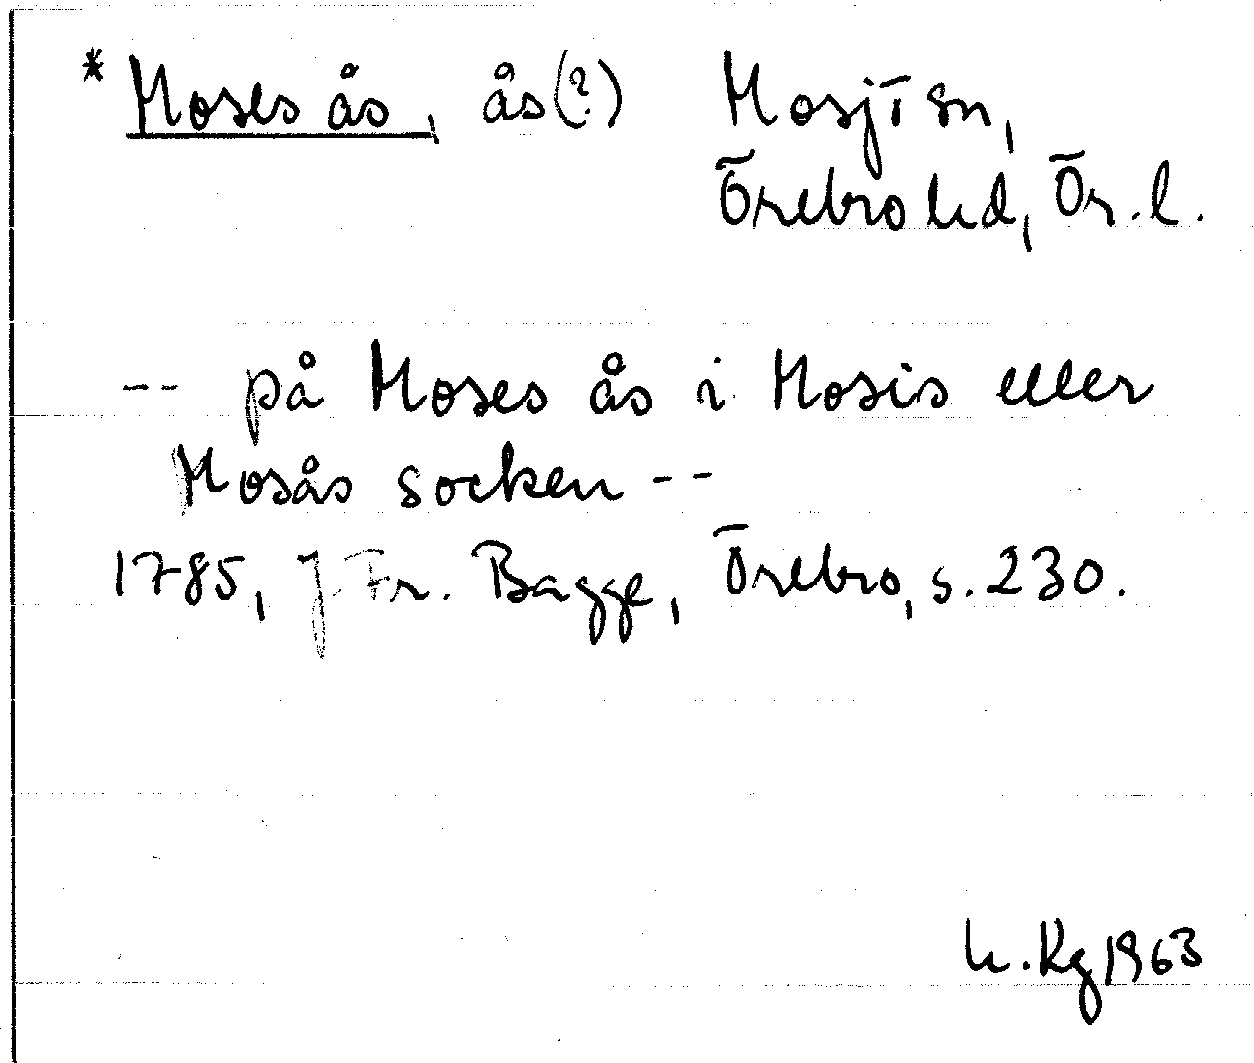 * Moses ås, ås(?) Mosjö sn,
Örebro hd, Ör. l.
-- på Moses ås i Mosis eller
Mosås socken --
1785, J Fr. Bagge, Örebro, s. 230.
h. Kg 1963